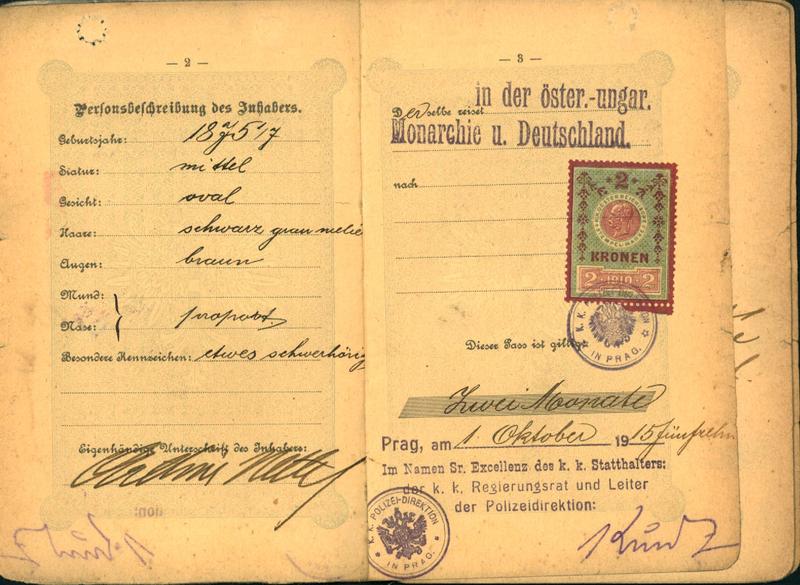 — 2 —
Personsbeschreibung des Inhabers.
Geburtsjahr:
Statur: mittel
Gesicht: oval
Haare: schwarz grau melie
Augen: braun
Mund:
Nase: proport.
Besondere Kennzeichen: etwas schwerhörig
Eigenhändige Unterschrift des Inhabers:
— 3 —
in der öster.-ungar.
Derselbe reiset
Monarchie u. Deutschland.
nach
2
KRONEN
2 1910 2
K. K. POLIZEI-DIREKTION
* IN PRAG. *
Dieser Pass ist giltig
Zwei Monate
Prag, am 1. Oktober 1915 fünfzehn
Im Namen Sr. Excellenz des k. k. Statthalters:
der k. k. Regierungsrat und Leiter
der Polizeidirektion:
K. K. POLIZEI-DIREKTION
* IN PRAG. *
Kunz